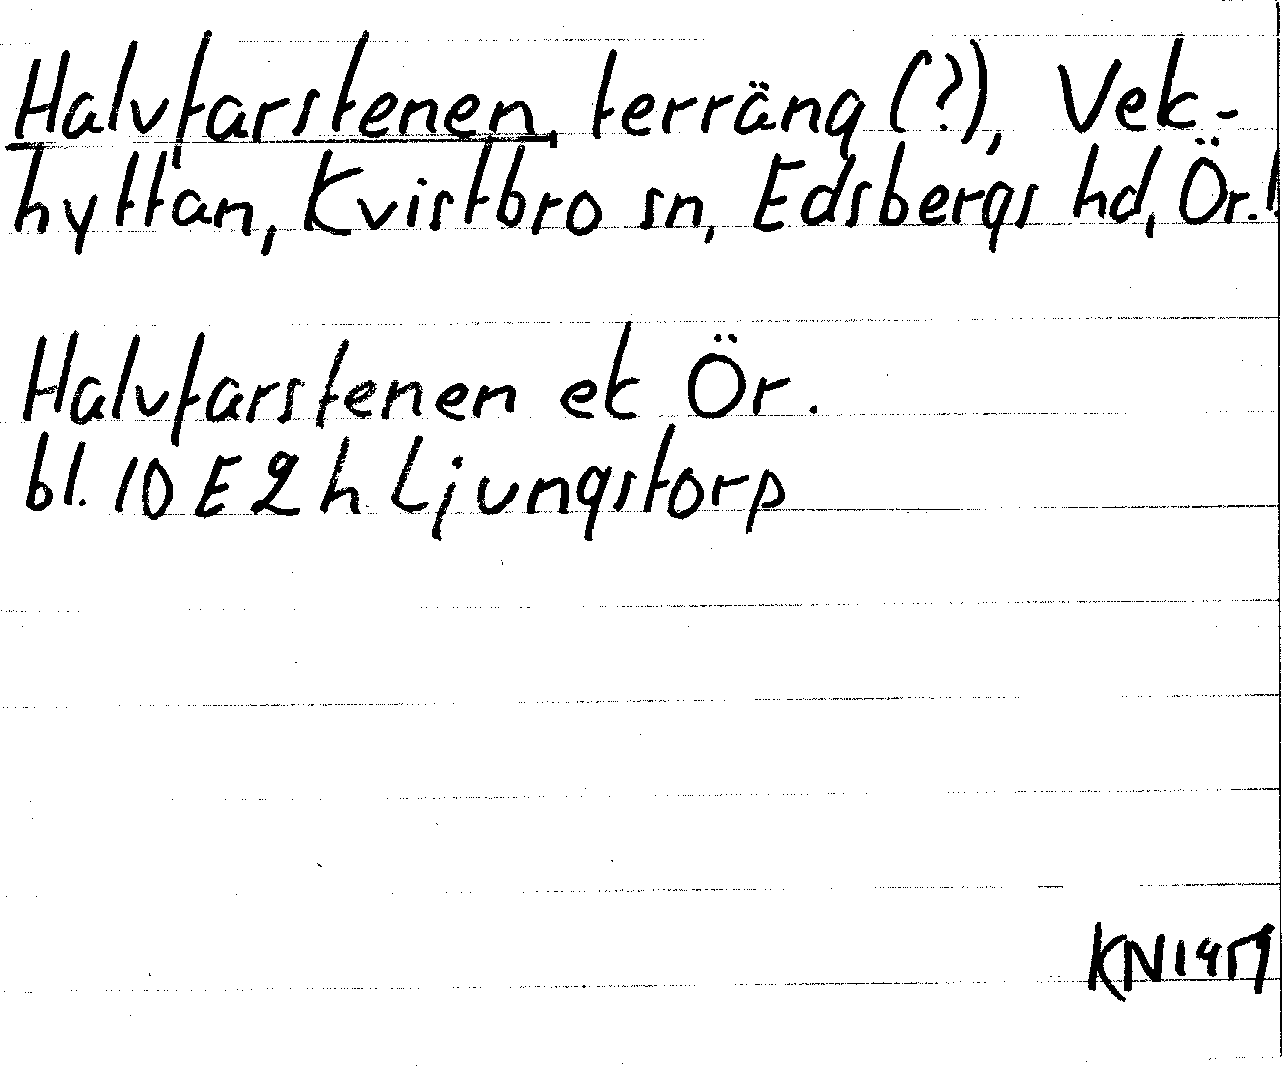 Halvfarstenen, terräng (?), Vek-
hyttan, Kvistbro sn, Edsbergs hd, Ör. l.
Halvfarstenen ek Ör.
bl. 10 E 2 h Ljungstorp